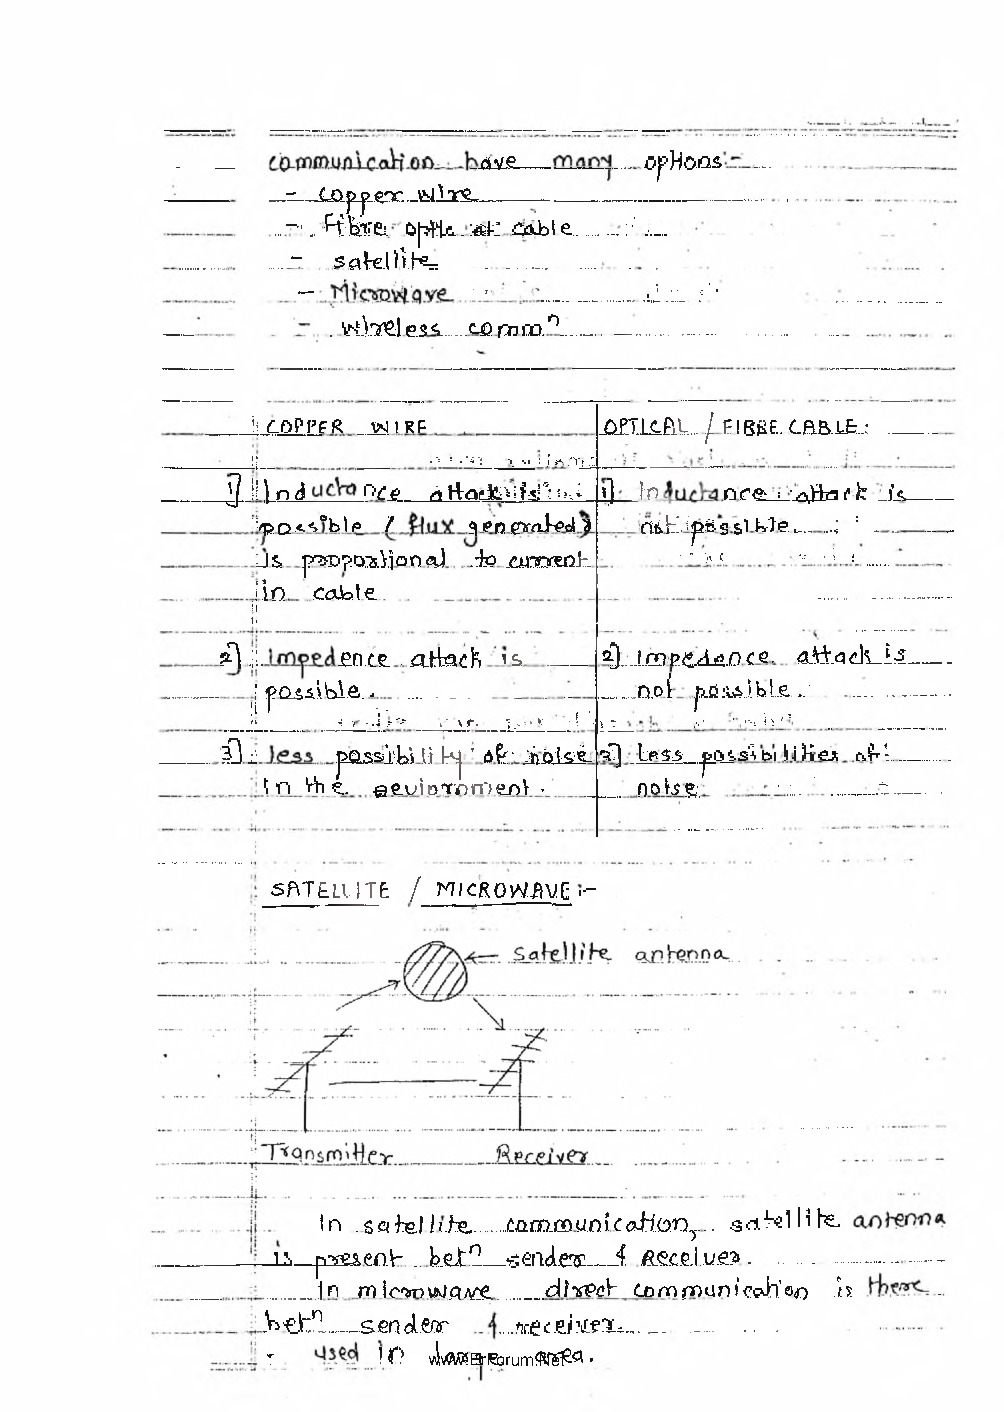 communication have many options:-
- copper wire
- Fibre optic at cable
- satellite
- Microwave
- wireless commⁿ
COPPER WIRE
OPTICAL / FIBRE CABLE:
1) Inductance attack is
possible ( flux generated)
is propostional to current
in cable
1) Inductance attack is
not possible.
2) impedence attack is
possible.
2) impedence attack is
not possible.
3) less possibility of noise
in the
3) less possibilities of
noise
SATELLITE / MICROWAVE :-
satellite antenna
Transmitter
Receiver
In satellite communication, satellite antenna
is present betⁿ sender & Receiver.
In microwave direct communication is there
betⁿ sender & receiver.
- used in area.